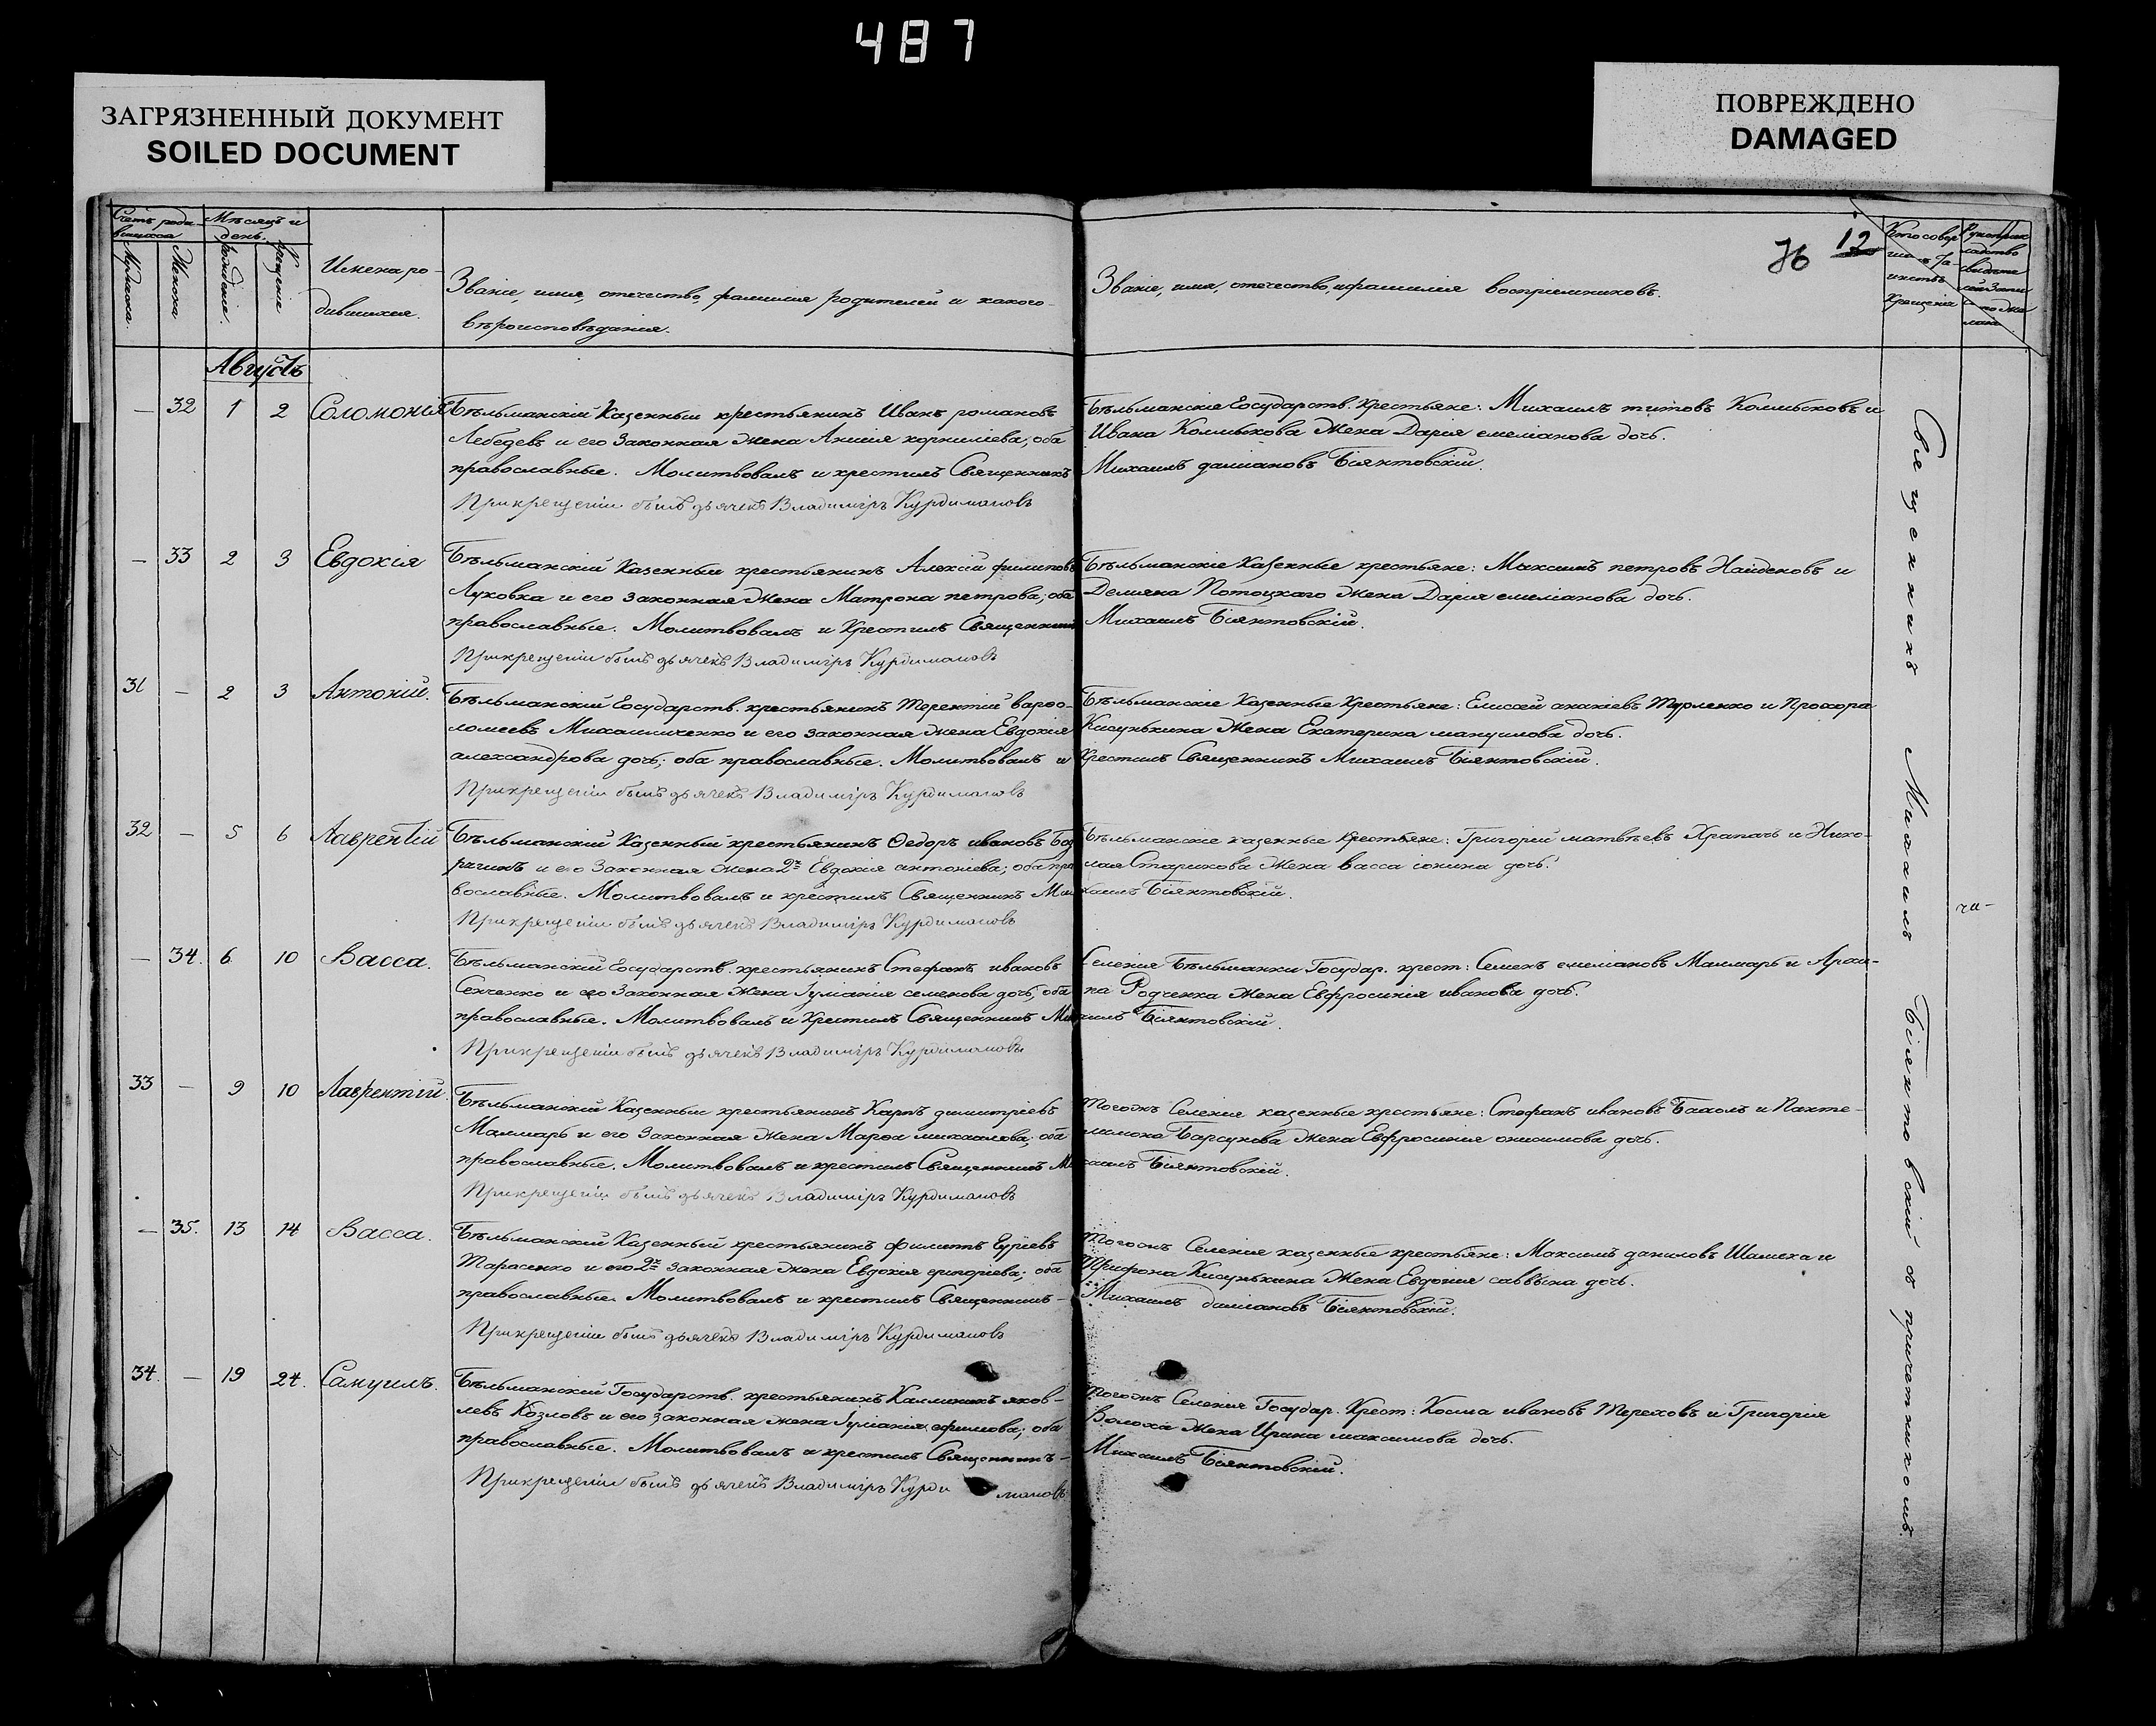 487
ЗАГРЯЗНЕННЫЙ ДОКУМЕНТ
SOILED DOCUMENT
ПОВРЕЖДЕНО
DAMAGED
12
Счетъ роди-
вшихся
Мѣсяцъ и
день.
Мужеска.
Женска
рожденіе.
крещеніе
Имена ро-
дившихся.
Званіе, имя, отечество, фамилія родителей и какого
вѣроисповѣданія.
Званіе, имя, отечество, и фамилія воспріемниковъ.
Кто совер
шилъ та-
инство
крещенія
Августъ
— 32 1 2 Соломонія Бѣльманскій Казенный крестьянинъ Иванъ романовъ
Лебедевъ и его Законная Жена Анисія корниліева, оба
православные. Молитвовалъ и крестилъ Священникъ
При крещеніи былъ дьячекъ Владиміръ Курдимановъ
Бѣльманскіе Государств. Крестьяне: Михаилъ титовъ Колпыковъ и
Ивана Колпыкова Жена Дарія емеліанова дочь.
Михаилъ даміановъ Біянтовскій.
— 33 2 3 Евдокія Бѣльманскій Казенный крестьянинъ Алексій филиповъ
Луховка и его Законная Жена Матрона петрова; оба
православные. Молитвовалъ и Крестилъ Священникъ
При крещеніи былъ дьячекъ Владиміръ Курдимановъ
Бѣльманскіе Казенные крестьяне: Максимъ петровъ Найденовъ и
Демяна Потоцкаго Жена Дарія емеліанова дочь.
Михаилъ Біянтовскій.
31 — 2 3 Антоній. Бѣльманскій Государств. крестьянинъ Терентій варѳо-
ломеевъ Михаиличенко и его законная Жена Евдокія
александрова дочь; оба православные. Молитвовалъ и
При крещеніи былъ дьячекъ Владиміръ Курдимановъ
Бѣльманскіе Казенные Крестьяне: Елисей ананіевъ Турленко и Прохора
Кисунькина Жена Екатерина мануилова дочь.
Крестилъ Священникъ Михаилъ Біянтовскій.
32 — 5 6 Лаврентій Бѣльманскій Казенный крестьянинъ Ѳедоръ ивановъ
и его Законная Жена 2я Евдокія антоніева; оба пра
вославные. Молитвовалъ и крестилъ Священникъ Ми
При крещеніи былъ дьячекъ Владиміръ Курдимановъ
Бѣльманскіе казенные крестьяне: Григорій матвѣевъ Храпачь и Нико-
лая Старикова Жена васса іонина дочь.
хаилъ Біянтовскій.
— 34. 6 10 Васса. Бѣльманскій Государств. крестьянинъ Стефанъ ивановъ
Сенченко и его Законная Жена Іуліанія семенова дочь; оба
православные. Молитвовалъ и Крестилъ Священникъ Ми
При крещеніи былъ дьячекъ Владиміръ Курдимановъ
Селенія Бѣльманки Государ. крест: Семенъ емеліановъ Малмарь и Архи-
па Родченка Жена Евфросинія иванова дочь.
хаилъ Біянтовскій.
33 — 9 10 Лаврентій. Бѣльманскій Казенный крестьянинъ Карпъ димитріевъ
Малмарь и его Законная Жена Марѳа михаилова; оба
православные. Молитвовалъ и крестилъ Священникъ Ми
При крещеніи былъ дьячекъ Владиміръ Курдимановъ
Тогожъ Селенія казенные крестьяне: Стефанъ ивановъ и Панте-
лимона Барсукова Жена Евфросинія онисимова дочь.
хаилъ Біянтовскій.
— 35. 13 14 Васса. Бѣльманскій Казенный крестьянинъ Филипъ Гуріевъ
Тарасенко и его 2я Законная Жена Евдокія григоріева; оба
православные. Молитвовалъ и крестилъ Священникъ —
При крещеніи былъ дьячекъ Владиміръ Курдимановъ
Тогожъ Селенія казенные крестьяне: Максимъ даниловъ Шамека и
Трифона Кисунькина Жена Евдокія саввына дочь.
Михаилъ даміановъ Біянтовскій.
34. — 19 24. Самуилъ. Бѣльманскій Государств. крестьянинъ Каллиникъ яков-
левъ Козловъ и его законная жена Іуліанія ефимова; оба
православные. Молитвовалъ и крестилъ Священникъ —
При крещеніи былъ дьячекъ Владиміръ Курдимановъ
Тогожъ Селенія Государ. Крест: Косма ивановъ Тереховъ и Григорія
Волоха Жена Ирина максимова дочь.
Михаилъ Біянтовскій.
Священникъ Михаилъ Біянтовскій съ причетникомъ.